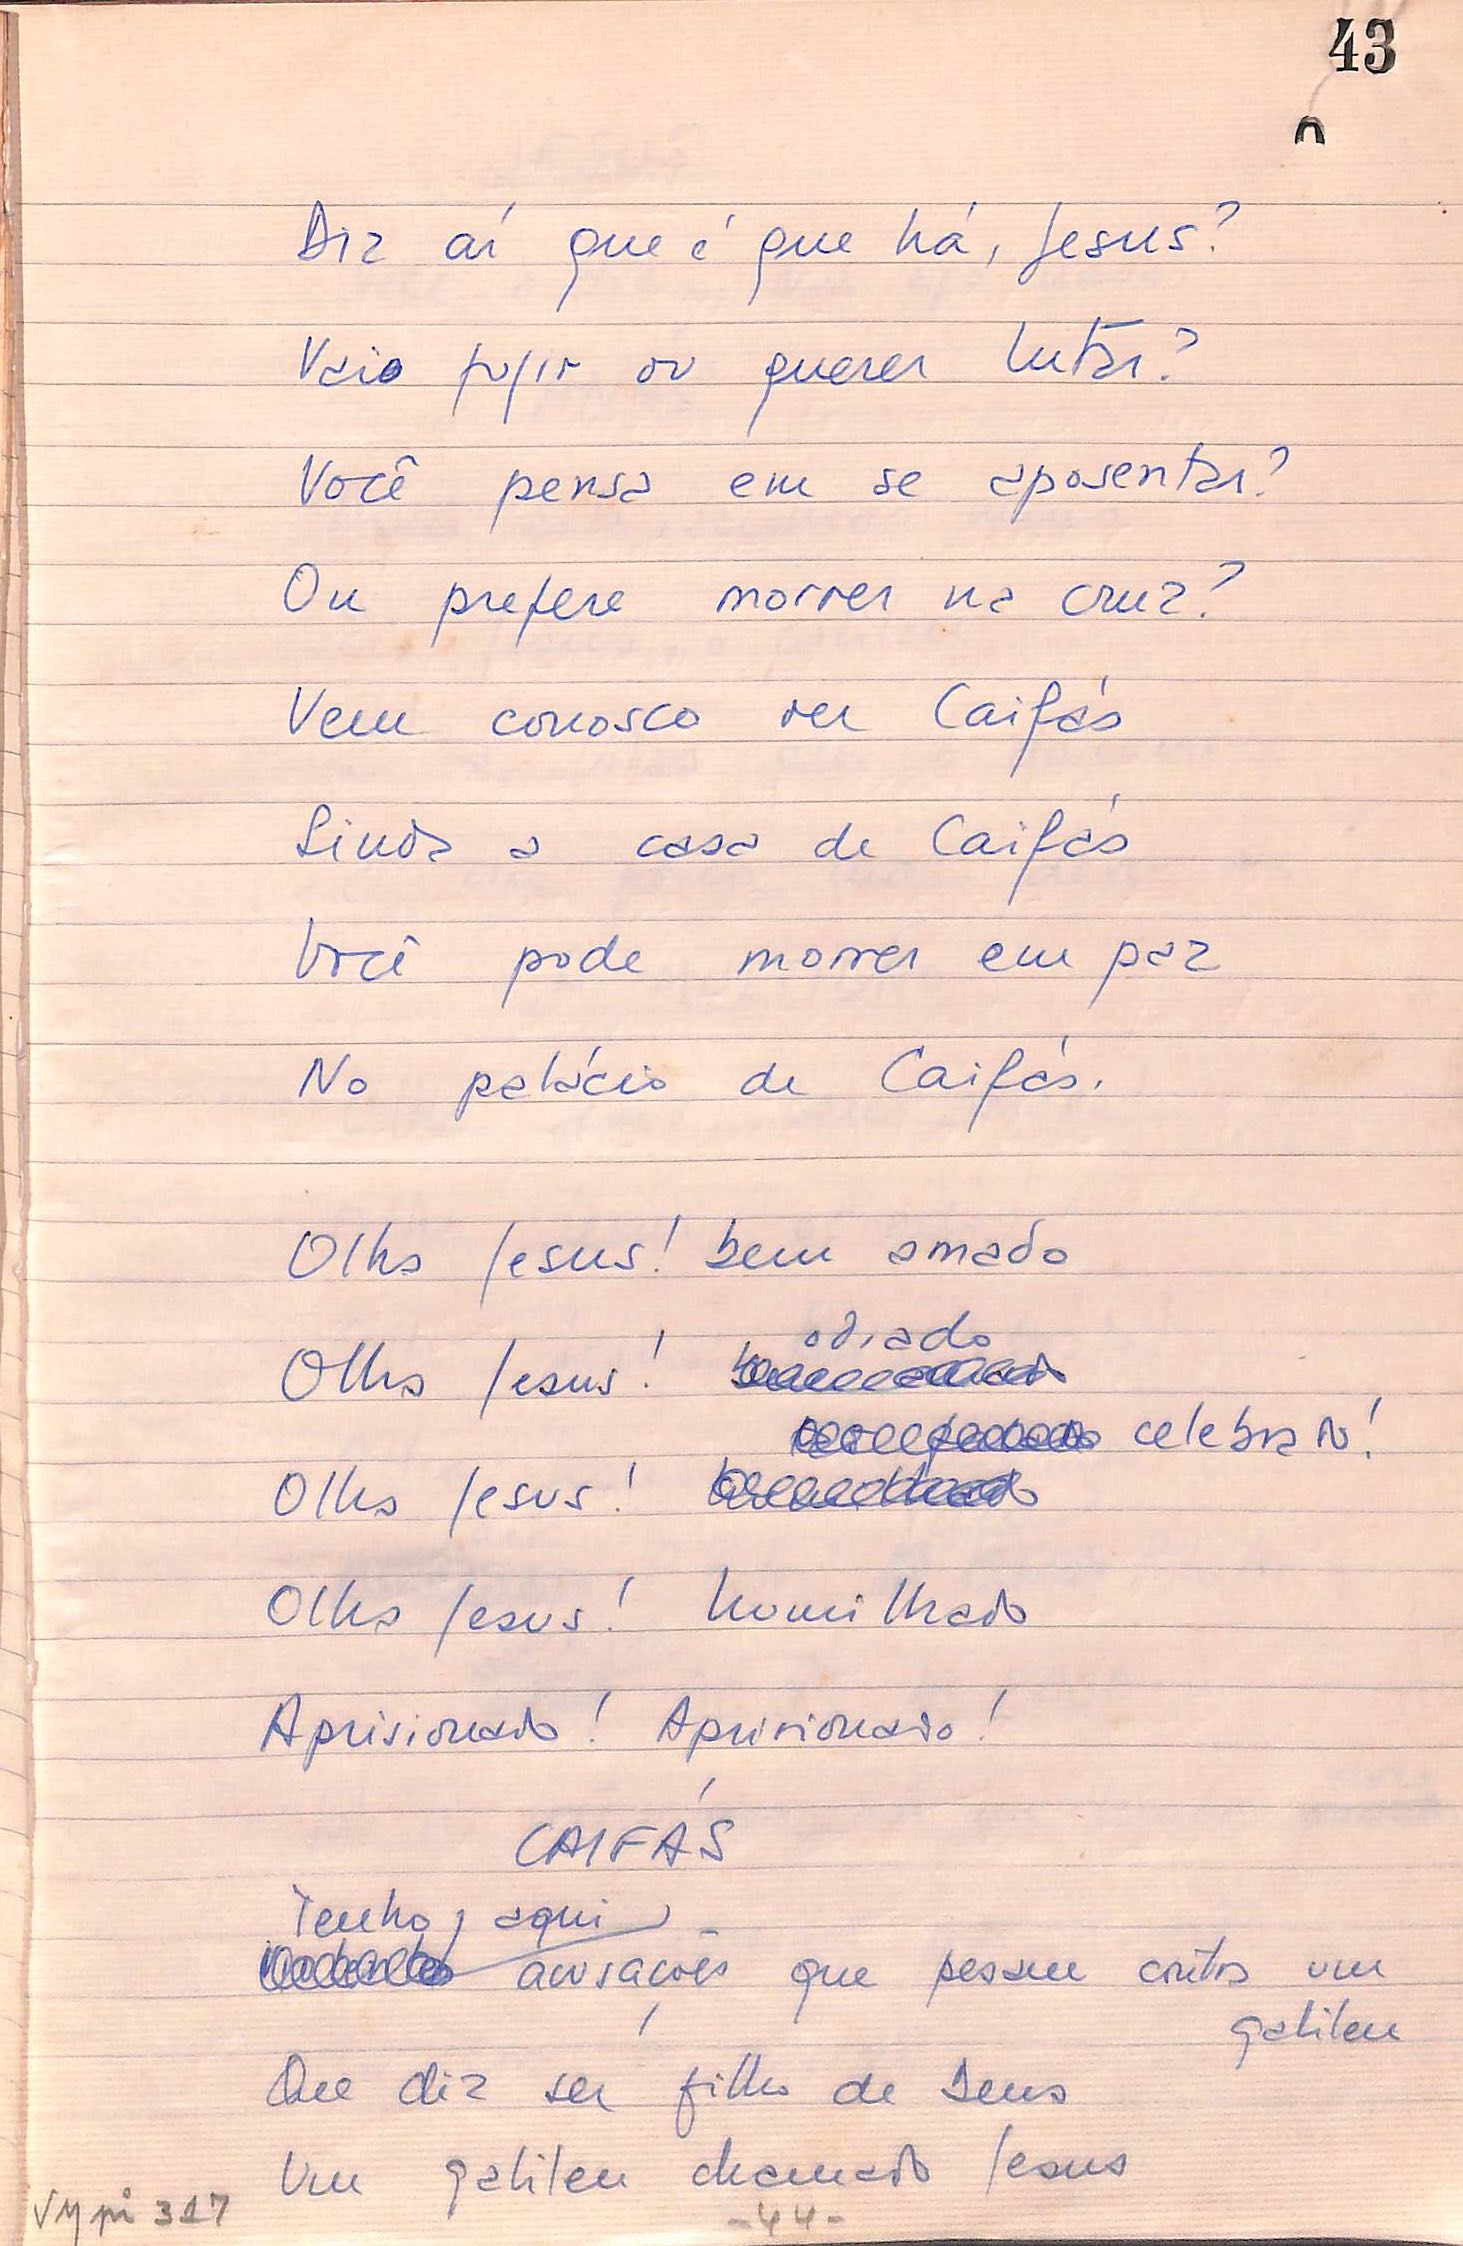 43
Diz aí que é que há, Jesus?
Vais fugir ou querer lutar?
Você pensa em se aposentar?
Ou prefere morrer na cruz?
Vem conosco ver Caifás
Linda a casa de Caifás
Você pode morrer em paz
No palácio de Caifás.
Olha Jesus! bem amado
odiado
Olha Jesus!
celebrado!
Olha Jesus!
Olha Jesus! humilhado
Aprisionado! Aprisionado!
CAIFÁS
Tenho, aqui
acusações que pesam contra um
galileu
Que diz ser filho de Deus
Um galileu chamado Jesus
VM pi 317
-44-